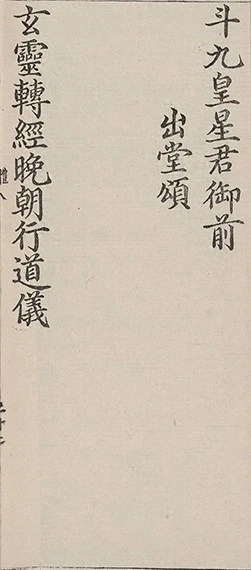 斗九皇星君御前
出堂頌
玄靈轉經晚朝行道儀